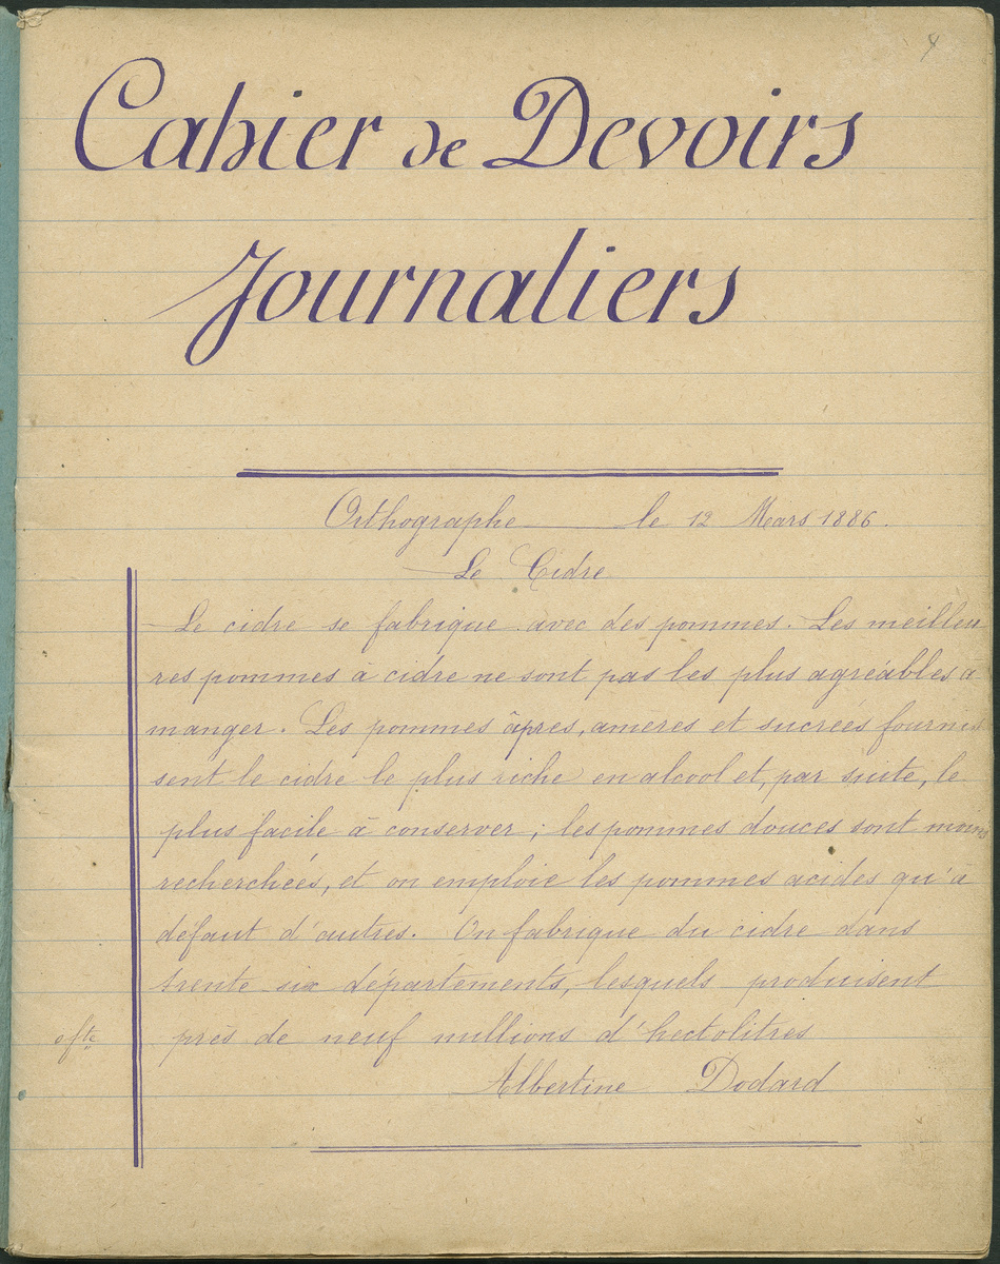 Cahier de Devoirs
Journaliers
Orthographe le 12 Mars 1886.
Le Cidre
Le cidre se fabrique avec des pommes. Les meilleu
res pommes à cidre ne sont pas les plus agréables à
manger. Les pommes âpres, amères et sucrées fournis
sent le cidre le plus riche en alcool et, par suite, le
plus facile à conserver ; les pommes douces sont moins
recherchées, et on emploie les pommes acides qu'à
défaut d'autres. On fabrique du cidre dans
trente-six départements, lesquels produisent
0 fte près de neuf millions d'hectolitres
Albertine Dodard